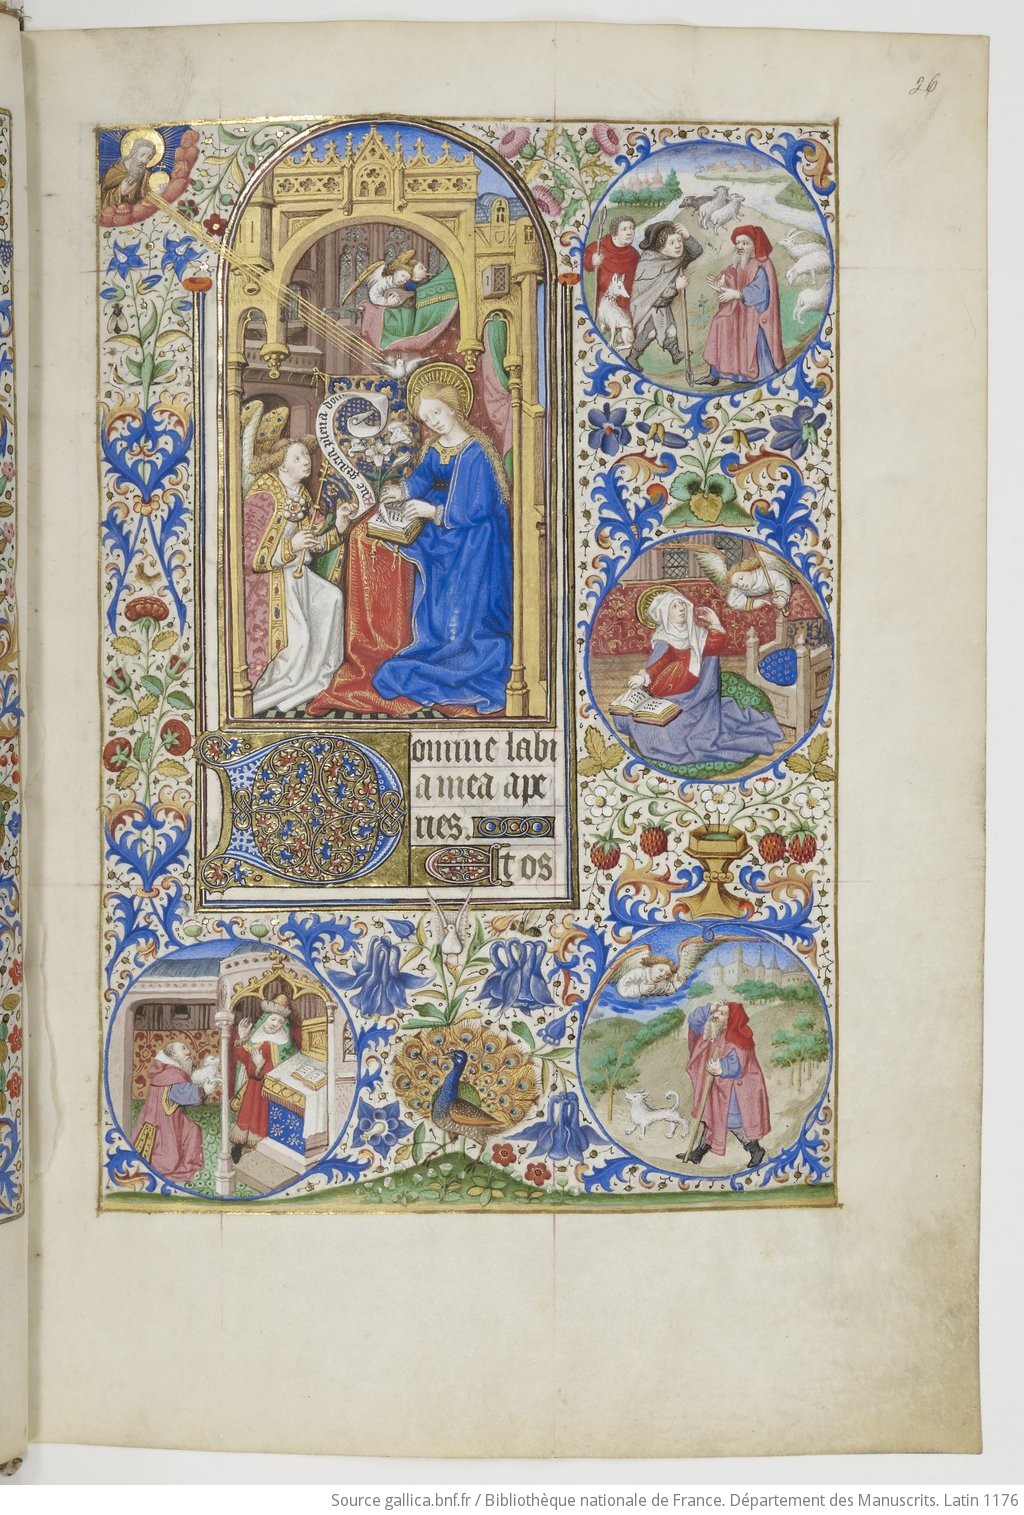 26
aue gracia plena dominus
Domine labi
a mea ape
ries.
Et os
Source gallica.bnf.fr / Bibliothèque nationale de France. Département des Manuscrits. Latin 1176